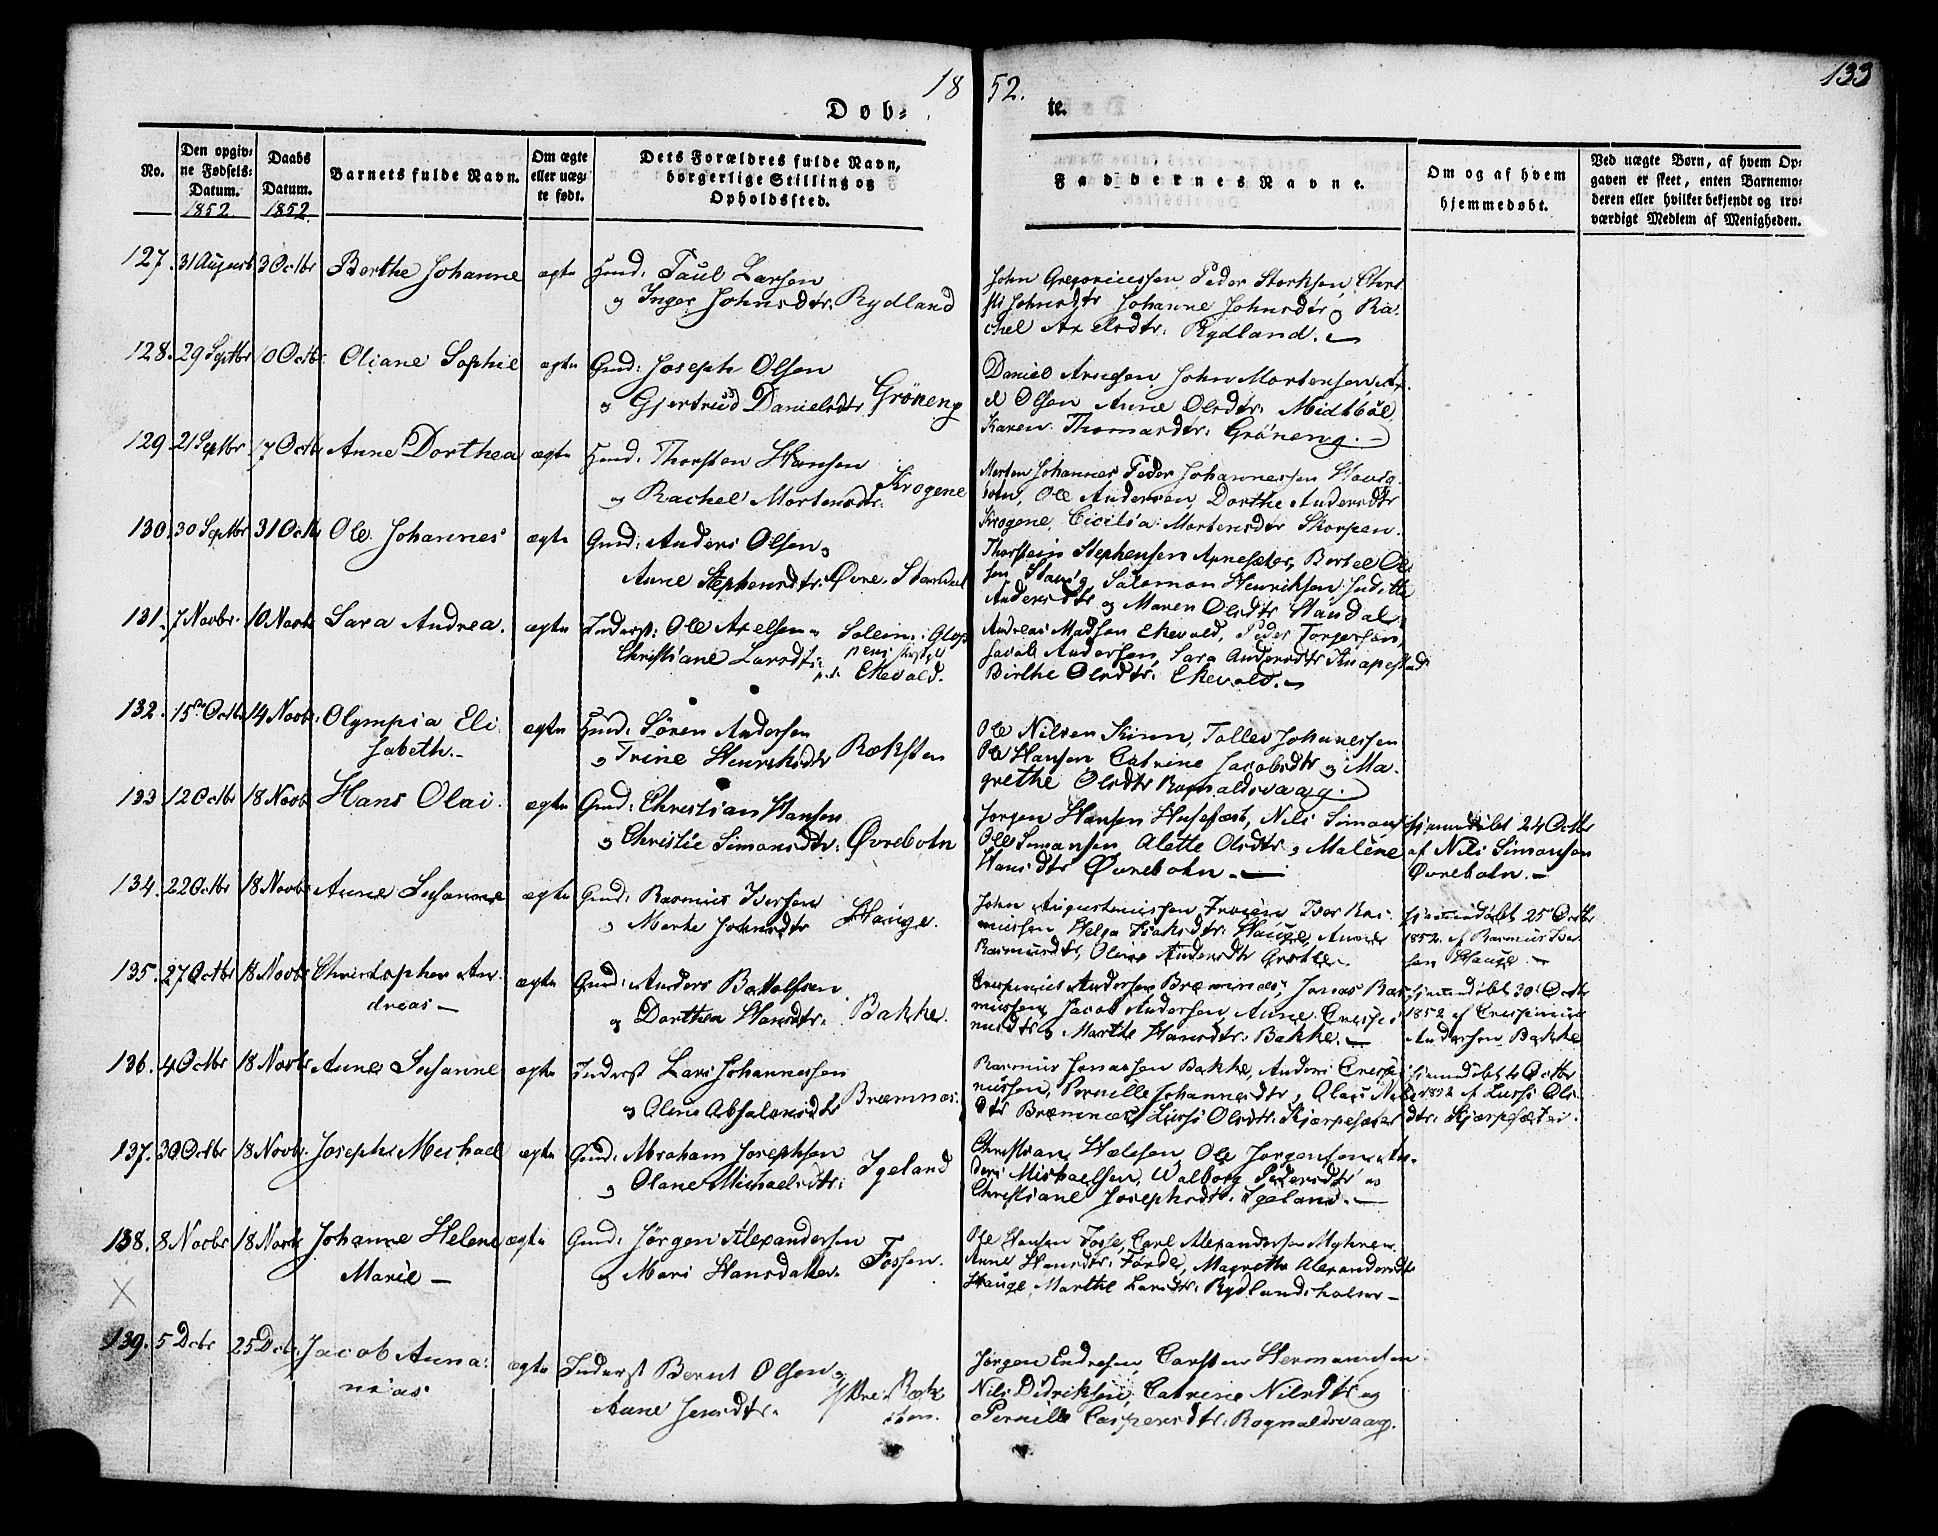 18 52. 133
Døb- te.
No.
Den opgiv-
ne Fødsels-
Datum.
1852
Daabs
Datum.
1852.
Barnets fulde Navn.
Om ægte
eller uæg-
te født.
Dets Forældres fulde Navn,
borgerlige Stilling og
Opholdssted.
Faddernes Navne.
Om og af hvem
hjemmedøbt.
Ved uægte Børn, af hvem Op-
gaven er skeet, enten Barnemo-
deren eller hvilket bekjendt og tro-
værdigt Medlem af Menigheden.
127. 31 August 3 Octbr Berthe Johanne ægte Gmd: Paul Larsen
og Inger Johnsdtr. Rydland
John Gregoriussen, Peder Storksen, Chri
sti Johnsdtr Johanne Johnsdtr og Ra-
chel Axelsdtr: Rydland.
128. 29 Septbr 10 Octbr Oliane Sophie ægte Gmd: Joseph Olsen
og Gjertrud Danielsdtr Gröneng
Daniel Arnesen John Mortensen Ax
el Olsen Anne Olsdtr: Midtböl,
Karen Thomasdtr: Gröneng.
129. 21 Septbr 17 Octb Anne Dorthea ægte Gmd: Thorsten Hansen
og Rachel Mortensdtr. Krogene
Morten Johannes, Peder Johannessen Stavig
botn, Ole Andersen, Dorthe Andersdtr
Krogene, Cicilia Mortensdtr Skorpen.
130. 30 Septbr 31 Octb Ole Johannes ægte Gmd: Anders Olsen og
Anne Stephensdtr: Øvre Standal
Thorstein Stephensen Arnesæter, Bertel Ol
sen Stavig, Salomon Henriksen, Judithe
Andersdtr og Maren Olsdtr Standal.
131. 7 Novbr. 10 Novbr Sara Andrea. ægte Inderst: Ole Axelsen og
Christiane Larsdtr: Ekevold.
Andreas Madsen Ekevold, Peder Torgersen,
Jacob Andersen, Sara Andersdtr Knapestad
Birthe Olsdtr: Ekevold.
132. 15 Octb 14 Novbr. Olympia Eli
sabeth. ægte Gmd: Sören Andersen
og Trine Henriksdtr Ræksten
Ole Nilsen Kinn, Tollev Johannessen
Ole Hansen Catrine Jacobsdtr og Ma-
grethe Olsdtr Rognaldsvaag.
133 12 Octbr 18 Novb Hans Olai. ægte Gmd: Christian Hansen
og Christie Simonsdtr: Øvrebotn
Jørgen Hansen Husefæst, Nils Simons
Ole Simonsen Alette Olsdtr og Malene
Hansdtr Øvrebotn.
hjemmedöbt 24 Octbr
af Nils Simonsen
Øvrebotn.
134. 22 Octbr 18 Novbr Anne Susanne ægte Gmd: Rasmus Iversen
og Marthe Johnsdtr Hauge.
John Augustinussen Frøien, Iver Ras-
mussen, Helga Isaksdtr: Hauge, Anne
Rasmusdtr, Oline Andersdtr
hjemmedöbt 25 Octbr
1852. af Rasmus Iver
sen Hauge.
135. 27 Octbr 18 Novbr Christopher An-
dreas ægte Gmd: Anders Batolfsen
og Dorthea Hansdtr. Bakke.
Crespinius Andersen Bremnes, Jonas Ras
mussen, Jacob Andersen, Anne Crespi
nusdtr og Marthe Hansdtr: Bakke.
hjemmedöbt 30 Octbr
1852 af Crespinius
Andersen Bakke
136. 4 Octbr 18 Novbr Anne Susanne ægte Inderst Lars Johannessen
og Oline Absalonsdtr Bræmnes.
Rasmus Jonassen Bakke, Anders Crespi
nussen, Pernille Johannesdtr og Olai Nils
dtr Bræmnes, Lussi Olsdtr: Kjærpesæter
hjemmedöbt 4 Octbr
1852 af Lussi Ols-
dtr: Kjærpesæter.
137. 30 Octbr 18 Novbr. Joseph Mechael ægte Gmd: Abraham Josephsen
og Olane Michaelsdtr: Igeland
Christian Hælesen, Ole Jørgensen, An-
ders Mickaelsen, Walborg Pedersdtr og
Christiane Josephsdtr. Igeland.
138. 8 Novbr 18 Novbr Johanne Helene
Marie ægte Gmd: Jørgen Alexandersen
og Mari Hansdatter. Fossen.
Ole Hansen Fosse, Carl Alexandersen Myhren.
Anne Hansdtr: Förde, Magrethe Alexandersdtr
Hauge, Marthe Larsdtr: Rydlandsholmer
X
139. 5 Dcbr 25 Dcbr. Jacob Anna-
nias ægte Inderst Bernt Olsen og
Anne Jensdtr. Ytre Ræk
sten.
Jørgen Endresen, Carsten Hermansen
Nils Didriksen, Catrine Nilsdtr og
Pernille Caspersdtr: Rognaldsvaag.